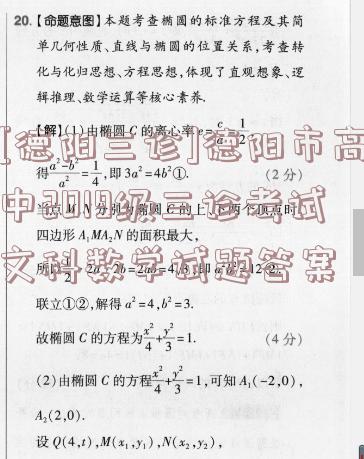 20.【命题意图】本题考查椭圆的标准方程及其简
单几何性质、直线与椭圆的位置关系,考查转
化与化归思想、方程思想,体现了直观想象、逻
辑推理、数学运算等核心素养.
【解】(1)由椭圆 C 的离心率 e=c/a=1/2,
[德阳三诊]德阳市高
得(a²-b²)/a²=1/4,即 3a²=4b²①. (2分)
中2019级三诊考试
当点 M,N 分别为椭圆 C 的上、下两个顶点时,
四边形 A₁MA₂N 的面积最大,
文科数学试题答案
所以1/2·2a·2b=2ab=4√3,即 a²b²=12②.
联立①②,解得 a²=4,b²=3.
故椭圆 C 的方程为x²/4+y²/3=1. (4分)
(2)由椭圆 C 的方程x²/4+y²/3=1,可知 A₁(-2,0),
A₂(2,0).
设 Q(4,t),M(x₁,y₁),N(x₂,y₂),